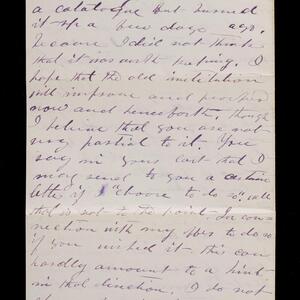 a catalogue but burned
it up a few days ago.
because I did not think
that it was worth keeping. I
hope that the old institution
will improve and prosper
now and henceforth, though
I believe that you are not
very partial to it. You
say in your last that I
may send to you a certain
letter if I "choose to do so", well
that is not to the point. In con-
nection with my to do so
if you wished it this can
hardly amount to a hint
in that direction. I do not